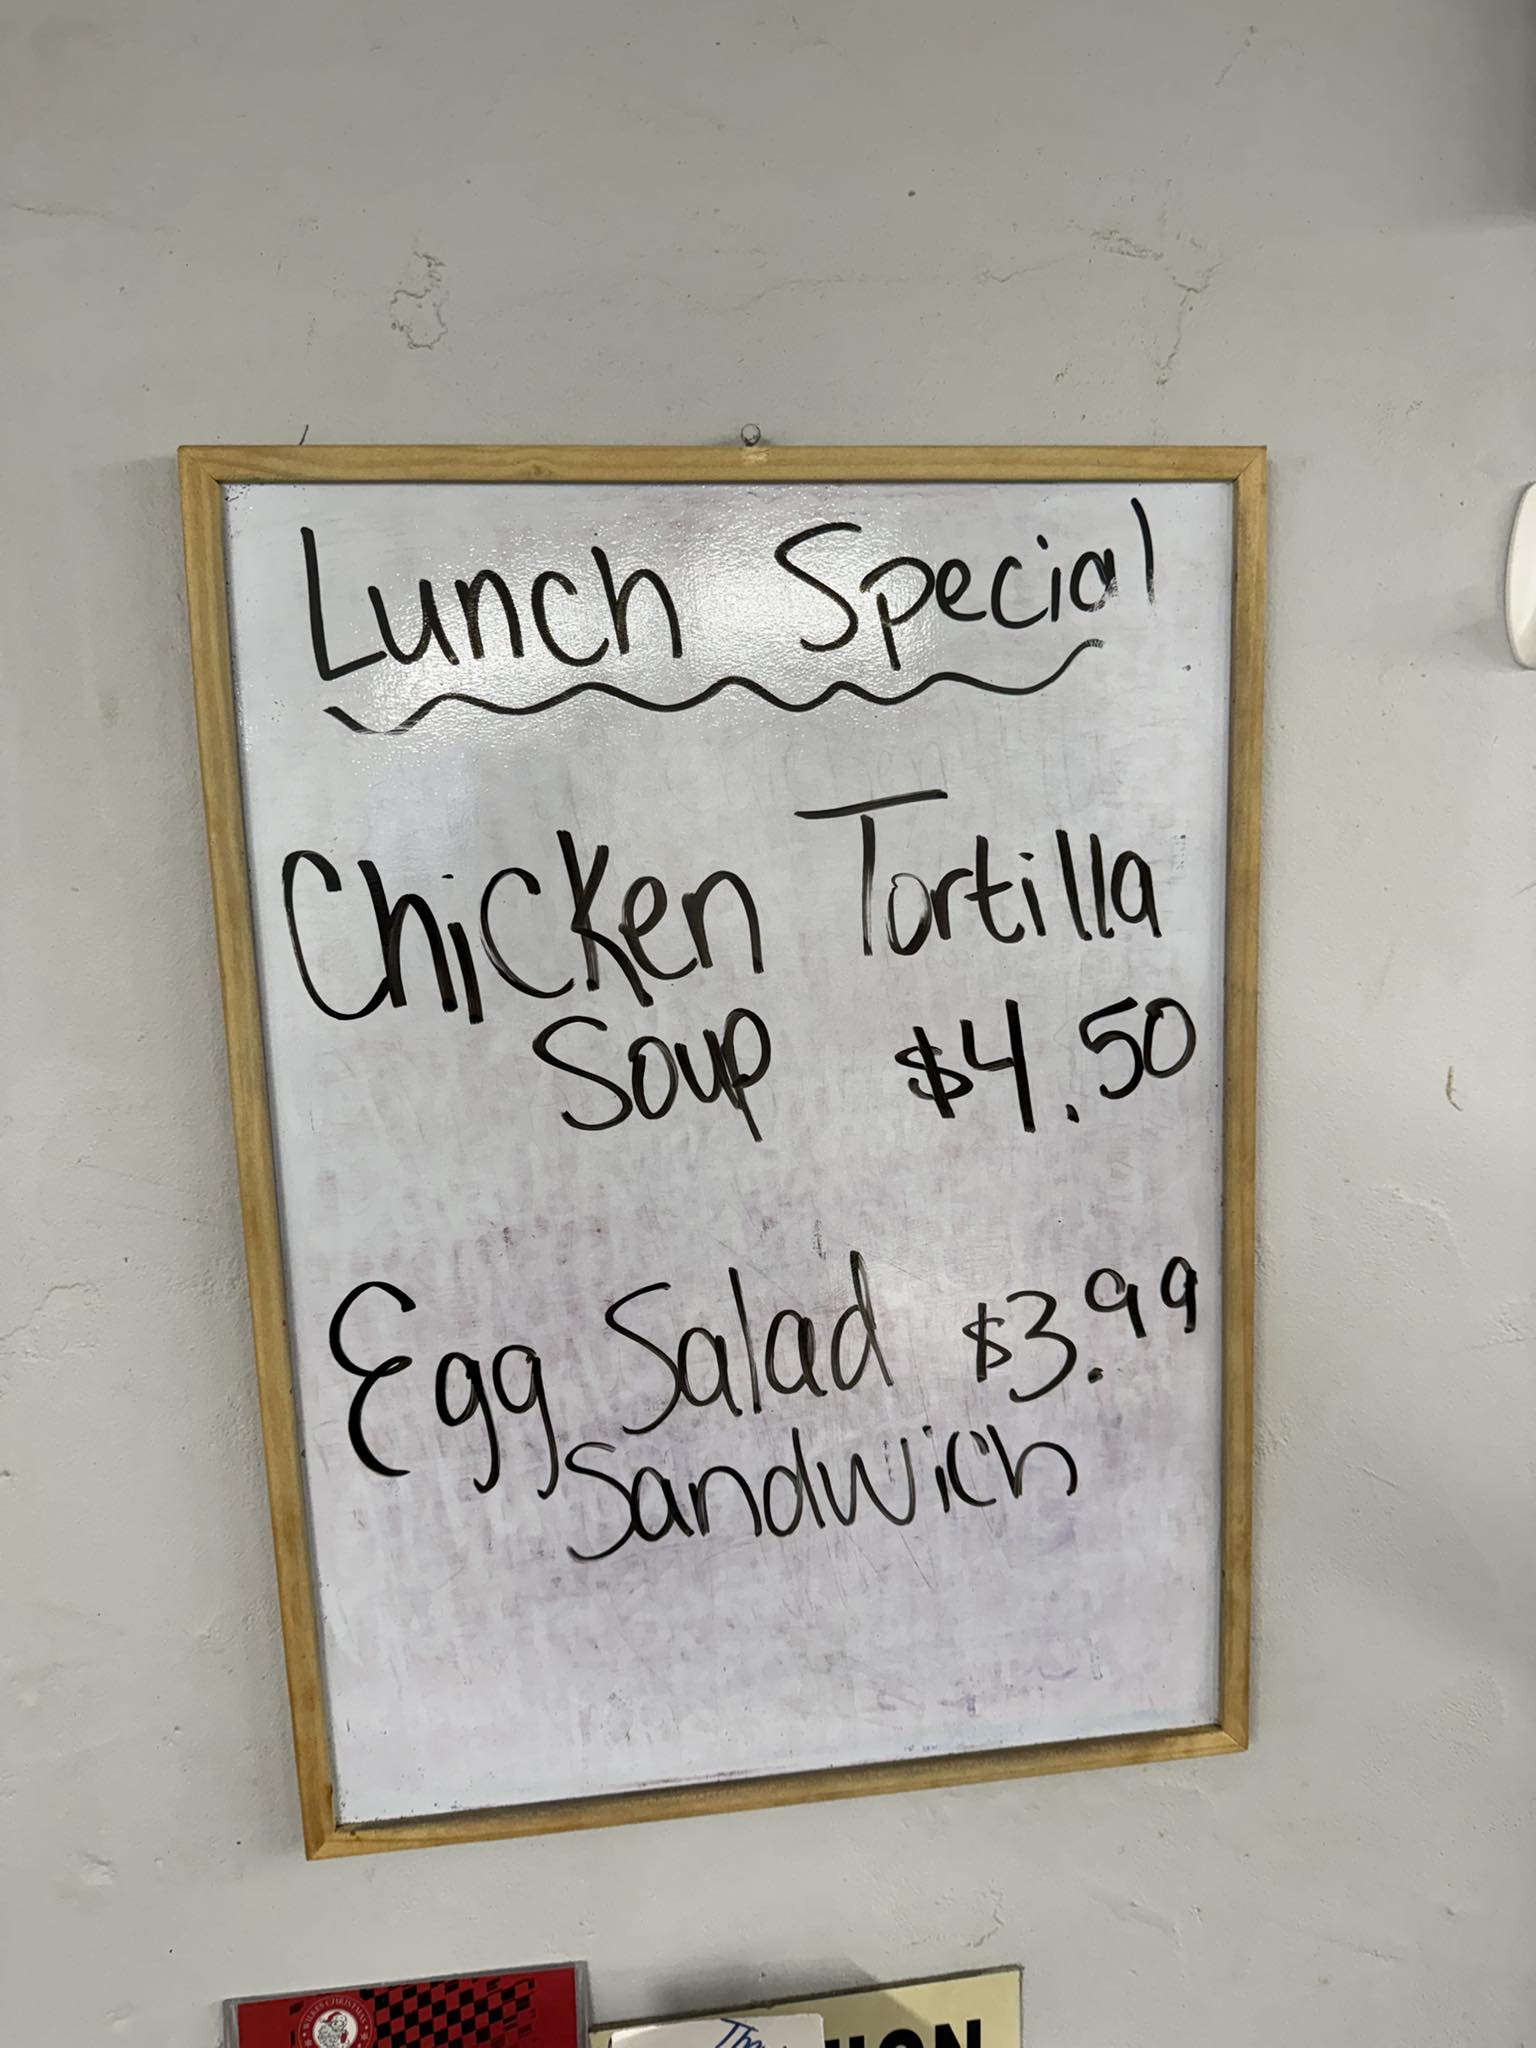 Lunch Special
Chicken Tortilla
Soup $4.50
Egg Salad $3.99
Sandwich